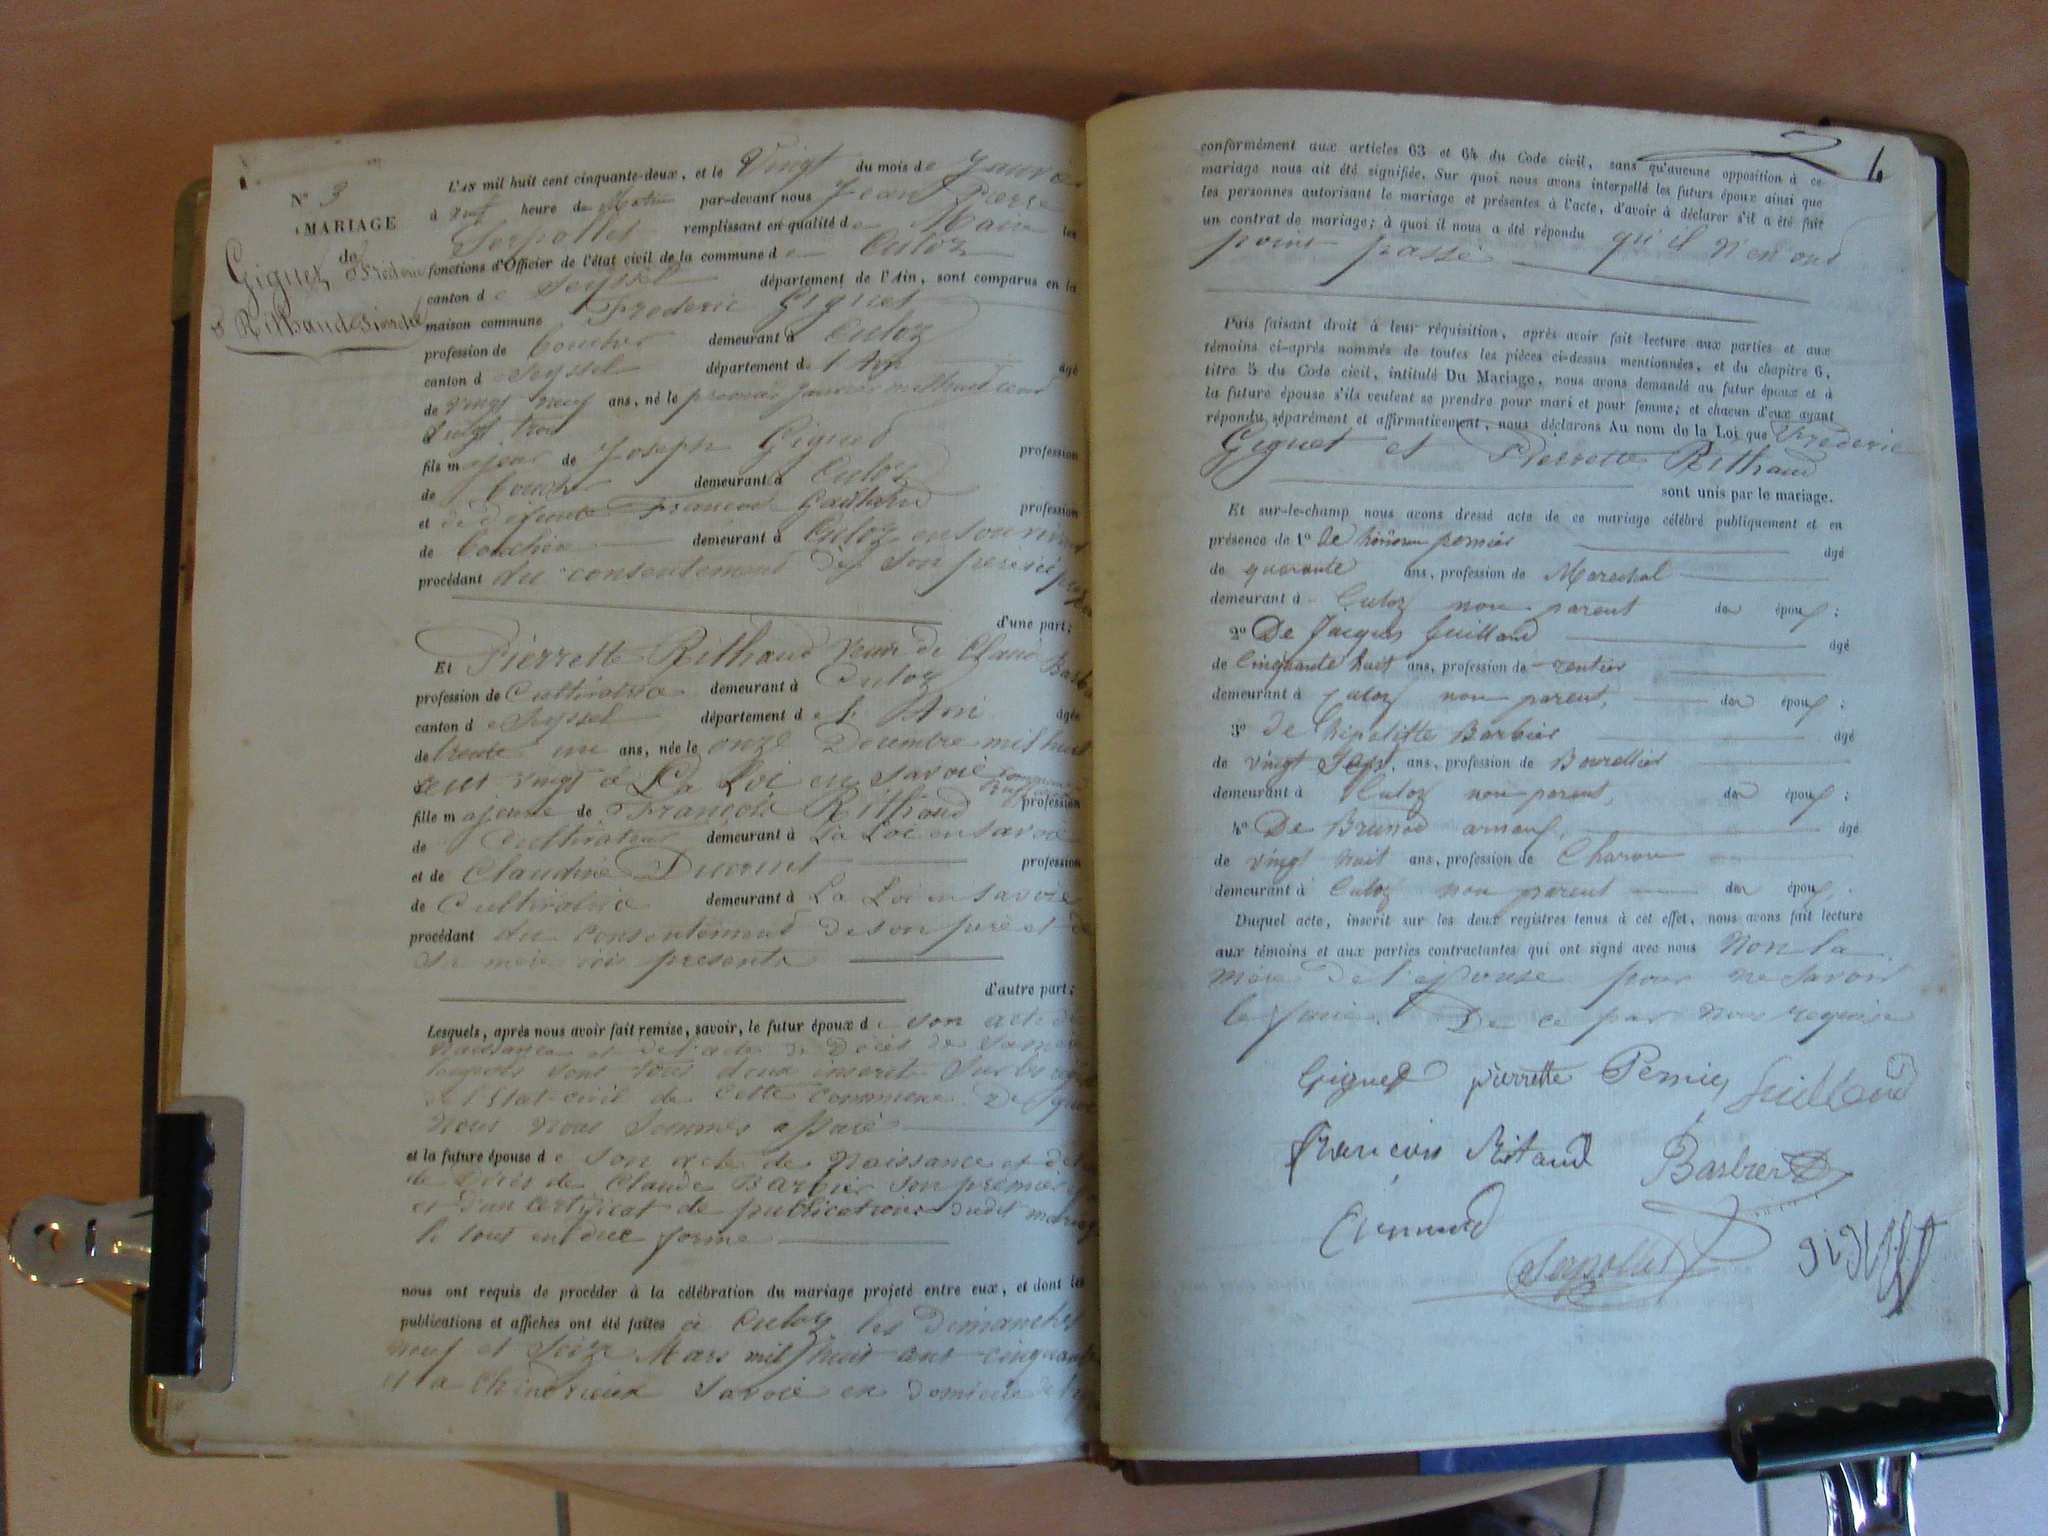 N° 3
MARIAGE
de
Giguet Frédéric
& Rithaud Pierrette
L'AN mil huit cent cinquante-deux, et le Vingt du mois de Janvier
à neuf heure du Matin par-devant nous Jean Pierre
Serpollet remplissant en qualité de Maire les
fonctions d'Officier de l'état civil de la commune de Culoz
canton de Seyssel département de l'Ain, sont comparus en la
maison commune Frederic Giguet
profession de boucher demeurant à Culoz
canton de Seyssel département de l'Ain âgé
de vingt neuf ans, né le premier Janvier mil huit cent
vingt trois
fils majeur de Joseph Giguet profession
de boucher demeurant à Culoz
et de defunte profession
de bouchère demeurant à Culoz en son vivant
procédant du consentement de son père ici
d'une part;
Et Pierrette Rithaud veuve de Claude Barbier
profession de Cultivatrice demeurant à Culoz
canton de Seyssel département de l'Ain âgée
de trente un ans, née le onze Decembre mil huit
cent vingt à La Loi en savoie
fille majeure de François Rithaud profession
de Cultivateur demeurant à La Loi en savoie
et de Claudine Ducruet profession
de Cultivatrice demeurant à La Loi en savoie
procédant du consentement de son père et de
sa mère ici présents
d'autre part;
Lesquels, après nous avoir fait remise, savoir, le futur époux de son acte de
naissance et de l'acte de Décès de sa mère
lesquels sont tous deux inscrit sur les
de l'Etat-civil de cette commune De quoi
nous nous sommes assuré
et la future épouse de son acte de Naissance et de
de Décès de Claude Barbier son premier
et d'un certificat de publications dudit mariage
le tout en due forme
nous ont requis de procéder à la célébration du mariage projeté entre eux, et dont les
publications et affiches ont été faites à Culoz les Dimanches
neuf et seize Mars mil huit cent cinquante
et a Chindrieux Savoie en domicile
6
conformément aux articles 63 et 64 du Code civil, sans qu'aucune opposition à ce
mariage nous ait été signifiée. Sur quoi nous avons interpellé les futurs époux ainsi que
les personnes autorisant le mariage et présentes à l'acte, d'avoir à déclarer s'il a été fait
un contrat de mariage; à quoi il nous a été répondu qu'il n'en ont
point passé
Puis faisant droit à leur réquisition, après avoir fait lecture aux parties et aux
témoins ci-après nommés de toutes les pièces ci-dessus mentionnées, et du chapitre 6,
titre 5 du Code civil, intitulé Du Mariage, nous avons demandé au futur époux et à
la future épouse s'ils veulent se prendre pour mari et pour femme; et chacun d'eux ayant
répondu séparément et affirmativement, nous déclarons Au nom de la Loi que Frederic
Giguet et Pierrette Rithaud
sont unis par le mariage.
Et sur-le-champ nous avons dressé acte de ce mariage célébré publiquement et en
présence de 1° De pernier âgé
de quarante ans, profession de Marechal
demeurant à Culoz non parent des époux;
2° De Jacques Guilland âgé
de Cinquante huit ans, profession de rentier
demeurant à Culoz non parent, des époux;
3° de hipolitte Barbier âgé
de vingt sept ans, profession de Bourellier
demeurant à Culoz non parent, des époux;
4° De Brunod âgé
de vingt huit ans, profession de Charon
demeurant à Culoz non parent des époux;
Duquel acte, inscrit sur les deux registres tenus à cet effet, nous avons fait lecture
aux témoins et aux parties contractantes qui ont signé avec nous Non la
mère de l'épouse pour ne savoir
le faire. De ce par nous requise
Giguet pierrette Pernier Guilland
francois Ritaud Barbier
Serpollet